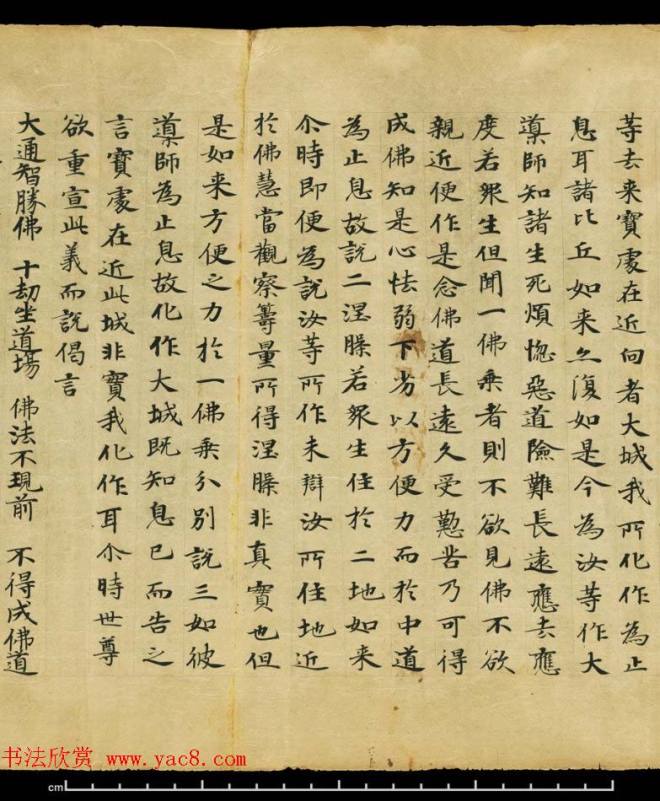 等去来寶處在近向者大城我所化作為止
息耳諸比丘如来亦復如是今為汝等作大
導師知諸生死煩惱惡道險難長遠應去應
度若衆生但聞一佛乘者則不欲見佛不欲
親近便作是念佛道長遠久受懃苦乃可得
成佛知是心怯弱下劣以方便力而於中道
為止息故說二涅槃若衆生住於二地如来
尒時即便為說汝等所作未辯汝所住地近
於佛慧當觀察籌量所得涅槃非真實也但
是如来方便之力於一佛乘分別說三如彼
導師為止息故化作大城既知息已而告之
言寶處在近此城非實我化作耳尒時世尊
欲重宣此義而說偈言
大通智勝佛 十劫坐道場 佛法不現前 不得成佛道
书法欣赏 www.yac8.com
cm